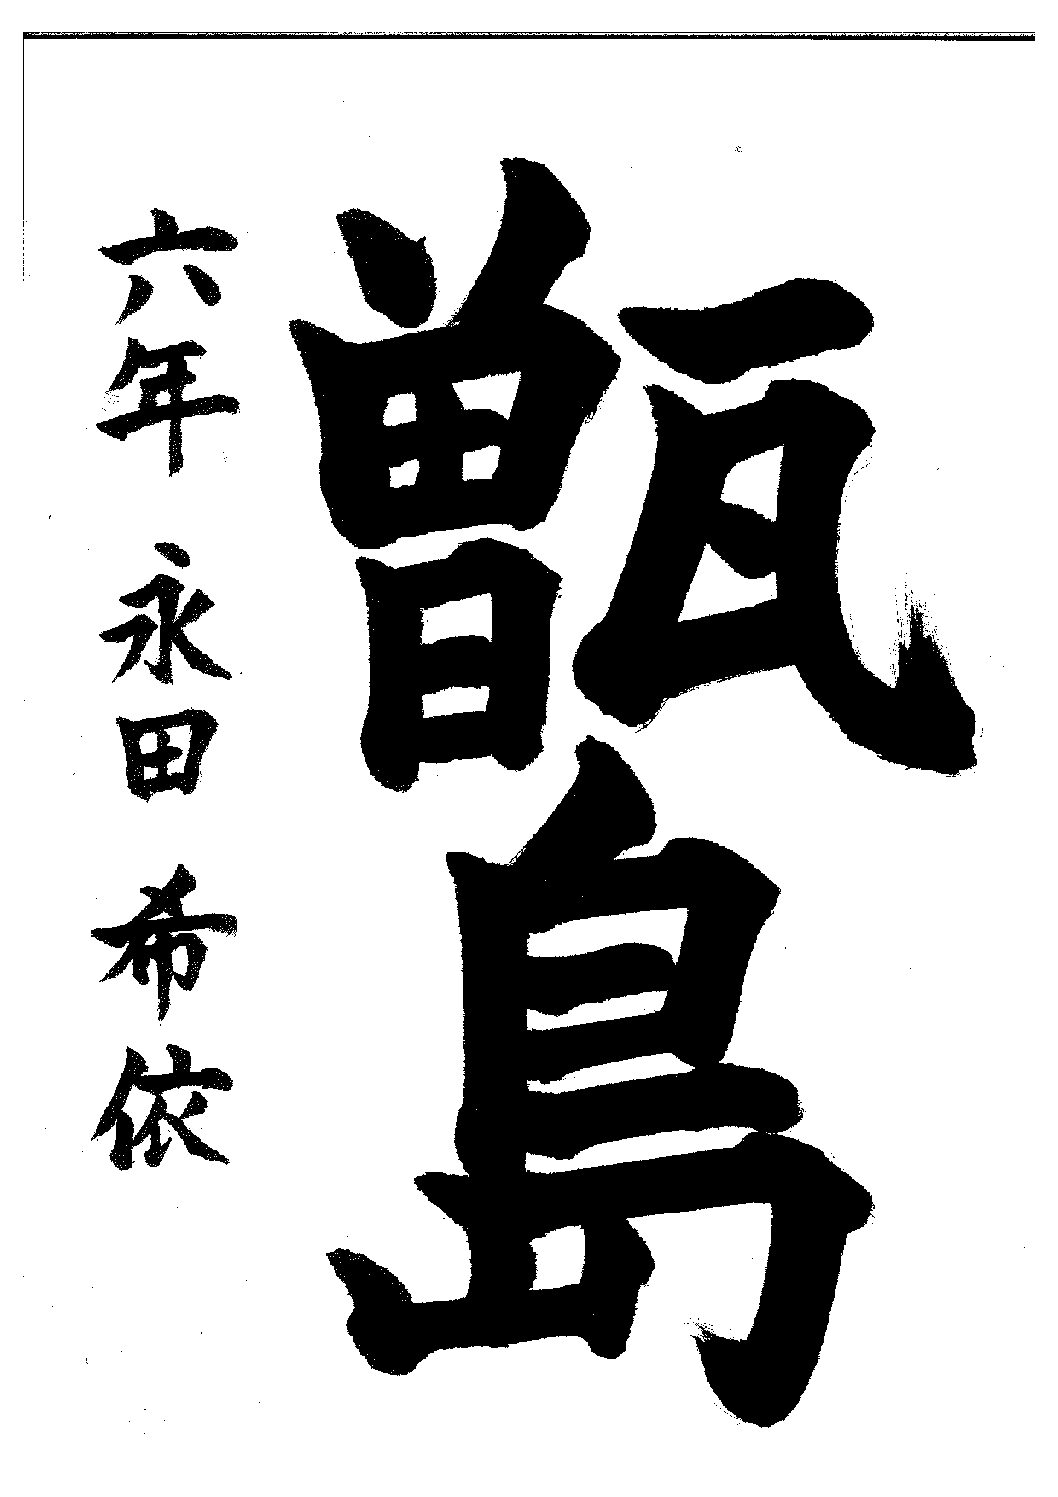 甑島
六年 永田 希依